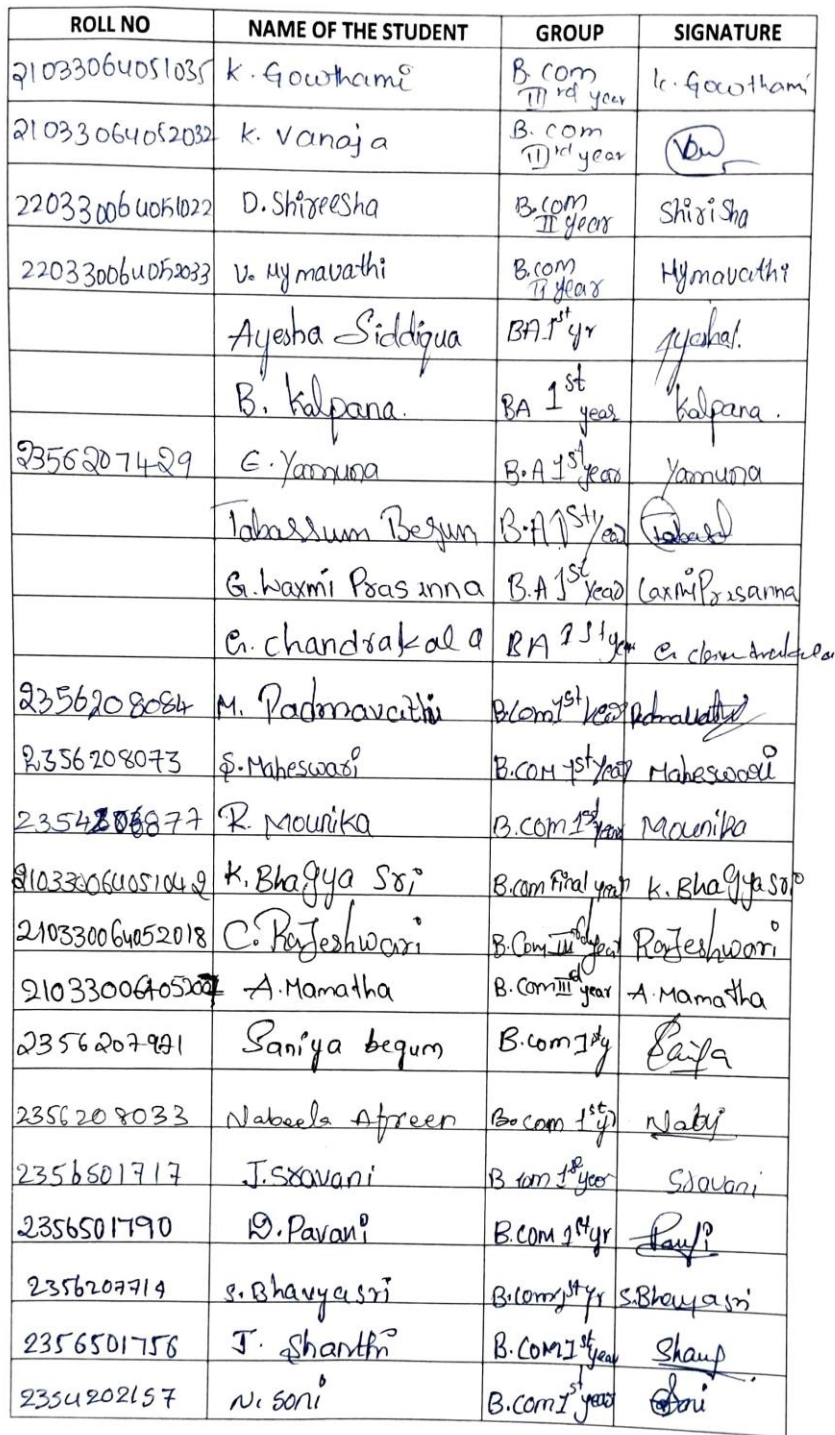 ROLL NO NAME OF THE STUDENT GROUP SIGNATURE
21033064051035 K. Gowthami B. com III rd year K. Gowthami
21033064052032 K. Vanaja B. com III rd year
220330064051022 D. Shireesha B.com II year Shirisha
220330064052033 V. Hymavathi B.com II year Hymavathi
Ayesha Siddiqua BA 1st yr Ayesha.
B. Kalpana. BA 1st year Kalpana.
23562071429 E. Yamuna B.A 1st year Yamuna
Tabassum Begum B.A 1st year
G. Laxmi Prasanna B.A 1st year Laxmi Prasanna
G. chandrakala BA 1st year
2356208084 M. Padmavathi B.com 1st year Padmavathi
2356208073 S. Maheswari B.COM 1st year Maheswari
R. Mounika B.com 1st year Mounika
210330064051042 K. Bhagya Sri B.com Final year K. Bhagya sri
210330064052018 C. Rajeshwari B.Com III rd year Rajeshwari
A. Mamatha B.com III rd year A. Mamatha
Saniya begum B.com 1st y
2356208033 Nabeela Afreen B.com 1st y
2356501717 J. Sravani B com 1st year Sravani
2356501790 D. Pavani B.com 1st yr
2356207719 S. Bhavyasri B.com 1st yr S. Bhavyasri
2356501756 J. Shanthi B.COM 1st year
2354202157 N. Soni B.com 1st year Soni